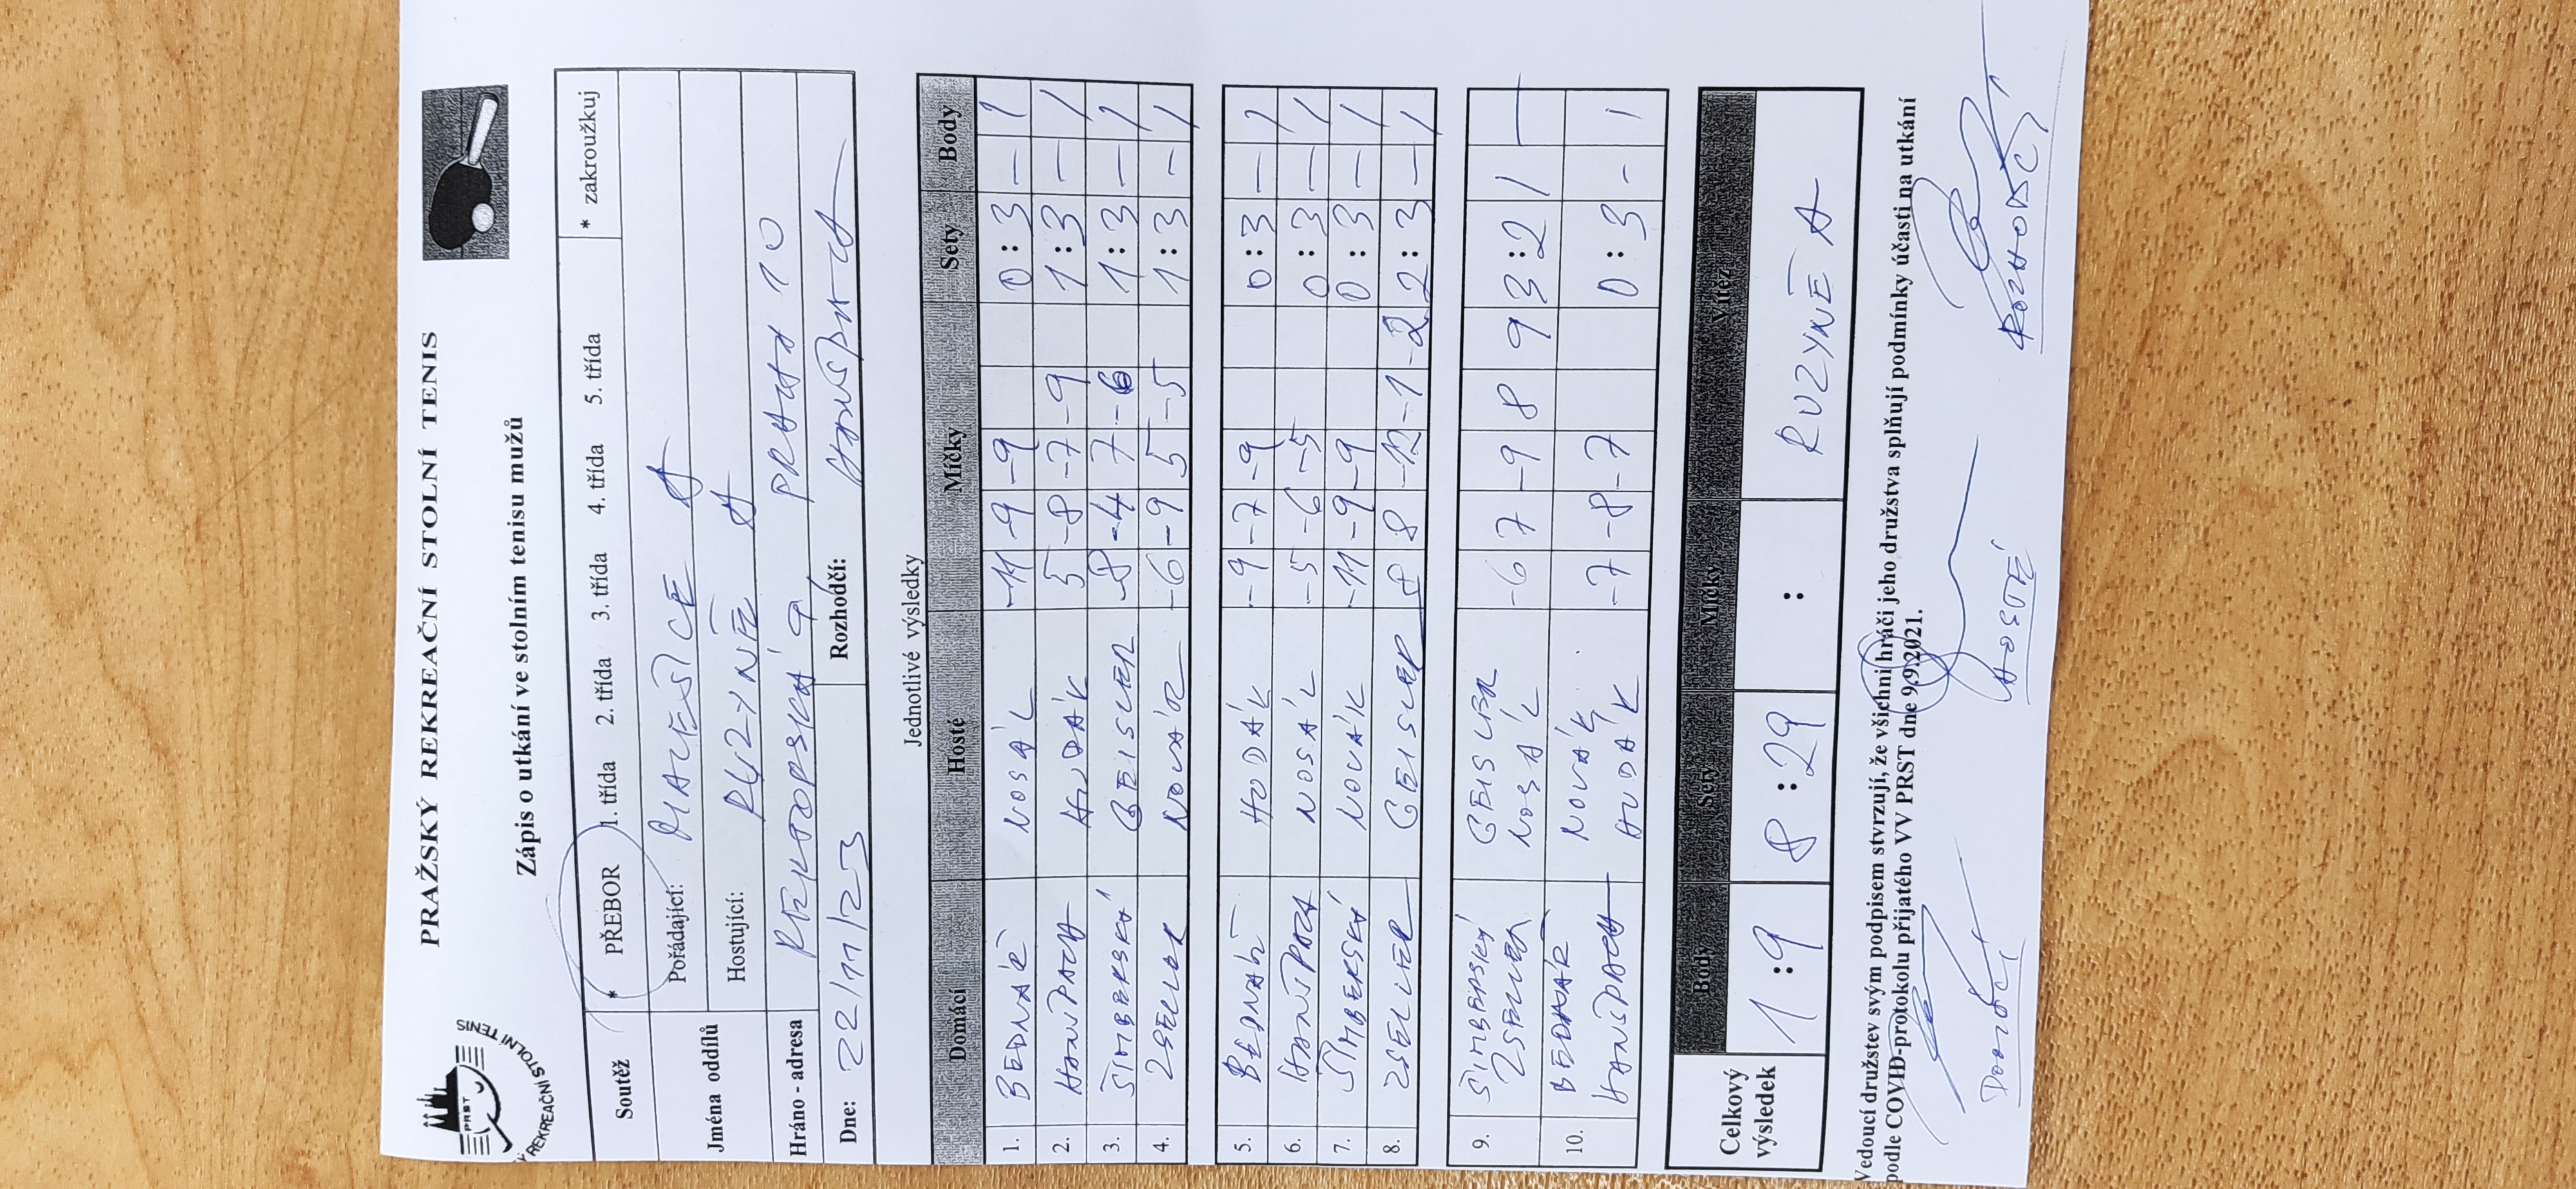 PRAŽSKÝ REKREAČNÍ STOLNÍ TENIS
PRST
REKREAČNÍ STOLNÍ TENIS
Zápis o utkání ve stolním tenisu mužů
Soutěž * PŘEBOR 1. třída 2. třída 3. třída 4. třída 5. třída * zakroužkuj
Jména oddílů Pořádající: MALEŠICE A
Hostující: RUZYNĚ A
Hráno - adresa REKTORSKÁ 9, PRAHA 10
Dne: 22/11/23 Rozhodčí: HANŠPACH
Jednotlivé výsledky
Domácí Hosté Míčky Sety Body
1. BEDNÁŘ NOSÁL -11 -9 -9 0:3 — 1
2. HANŠPACH HUDÁK 5 -8 -7 -9 1:3 — 1
3. ŠIMBERSKÝ GEISLER -8 -4 7 -6 1:3 — 1
4. ZSELLER NOVÁK -6 -9 5 -5 1:3 — 1
5. BEDNÁŘ HUDÁK -9 -7 -9 0:3 — 1
6. HANŠPACH NOSÁL -5 -6 -5 0:3 — 1
7. ŠIMBERSKÝ NOVÁK -11 -9 -9 0:3 — 1
8. ZSELLER GEISLER 8 8 -12 -1 -2 2:3 — 1
9. ŠIMBERSKÝ GEISLER -6 7 -9 8 9 3:2 1 —
ZSELLER NOSÁL
10. BEDNÁŘ NOVÁK -7 -8 -7 0:3 - 1
HANŠPACH HUDÁK
Celkový výsledek Body Sety Míčky Vítěz
1:9 8:29 : RUZYNĚ A
Vedoucí družstev svým podpisem stvrzují, že všichni hráči jeho družstva splňují podmínky účasti na utkání
podle COVID-protokolu přijatého VV PRST dne 9.9.2021.
HOSTÉ ROZHODČÍ